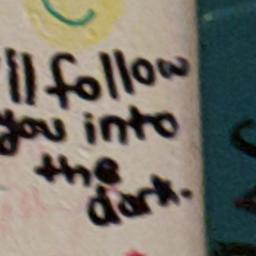 'll follow
you into
the
dark.